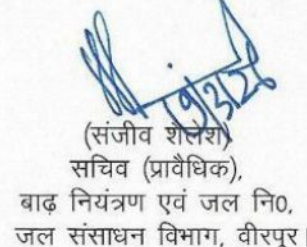 19/3/26
(संजीव शैलेश)
सचिव (प्रावैधिक),
बाढ़ नियंत्रण एवं जल नि०,
जल संसाधन विभाग, वीरपुर